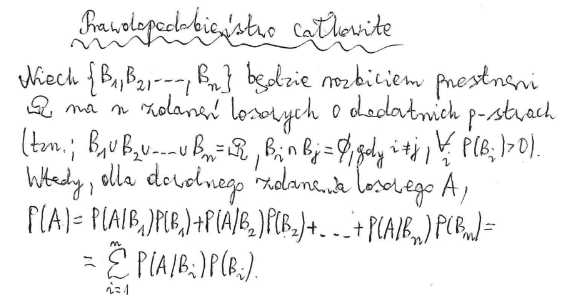 Prawdopodobieństwo całkowite
Niech {B₁,B₂,---,Bₙ} będzie rozbiciem przestrzeni
Ω na n zdarzeń losowych o dodatnich p-stwach
(tzn.; B₁∪B₂∪---∪Bₙ=Ω, Bᵢ∩Bⱼ=∅, gdy i≠j, ∀ᵢ P(Bᵢ)>0).
Wtedy, dla dowolnego zdarzenia losowego A,
P(A)=P(A/B₁)P(B₁)+P(A/B₂)P(B₂)+...+P(A/Bₙ)P(Bₙ)=
= ∑ᵢ₌₁ⁿ P(A/Bᵢ)P(Bᵢ).